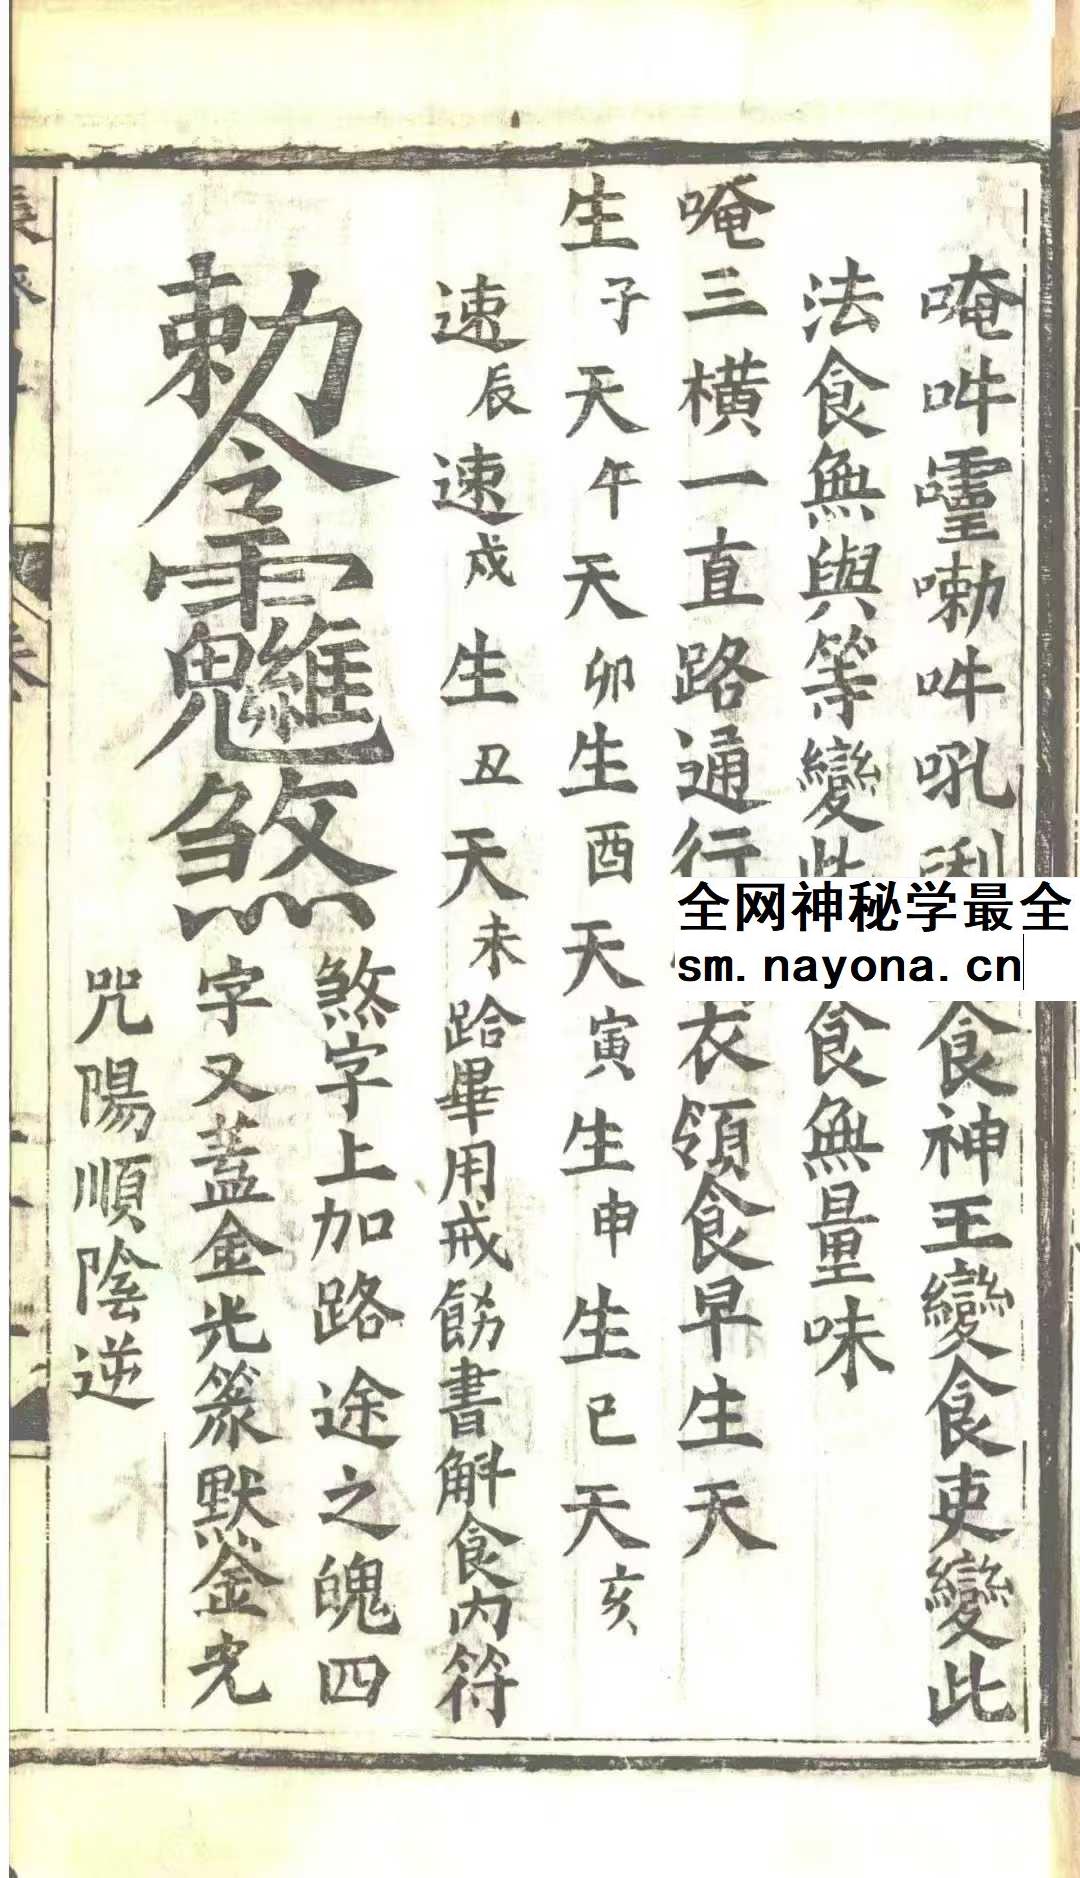 唵吽囕嘞吽吼唎食神王變食吏變此
法食無與等變此食無量味
唵三橫一直路通行衣領食早生天
生子天午天卯生酉天寅生申生巳天亥
速辰速戌生丑天未跲畢用戒飭書斛食內符
勅令煞
煞字上加路途之魄四
字又蓋金光篆默金光
咒陽順陰逆
全网神秘学最全
sm.nayona.cn